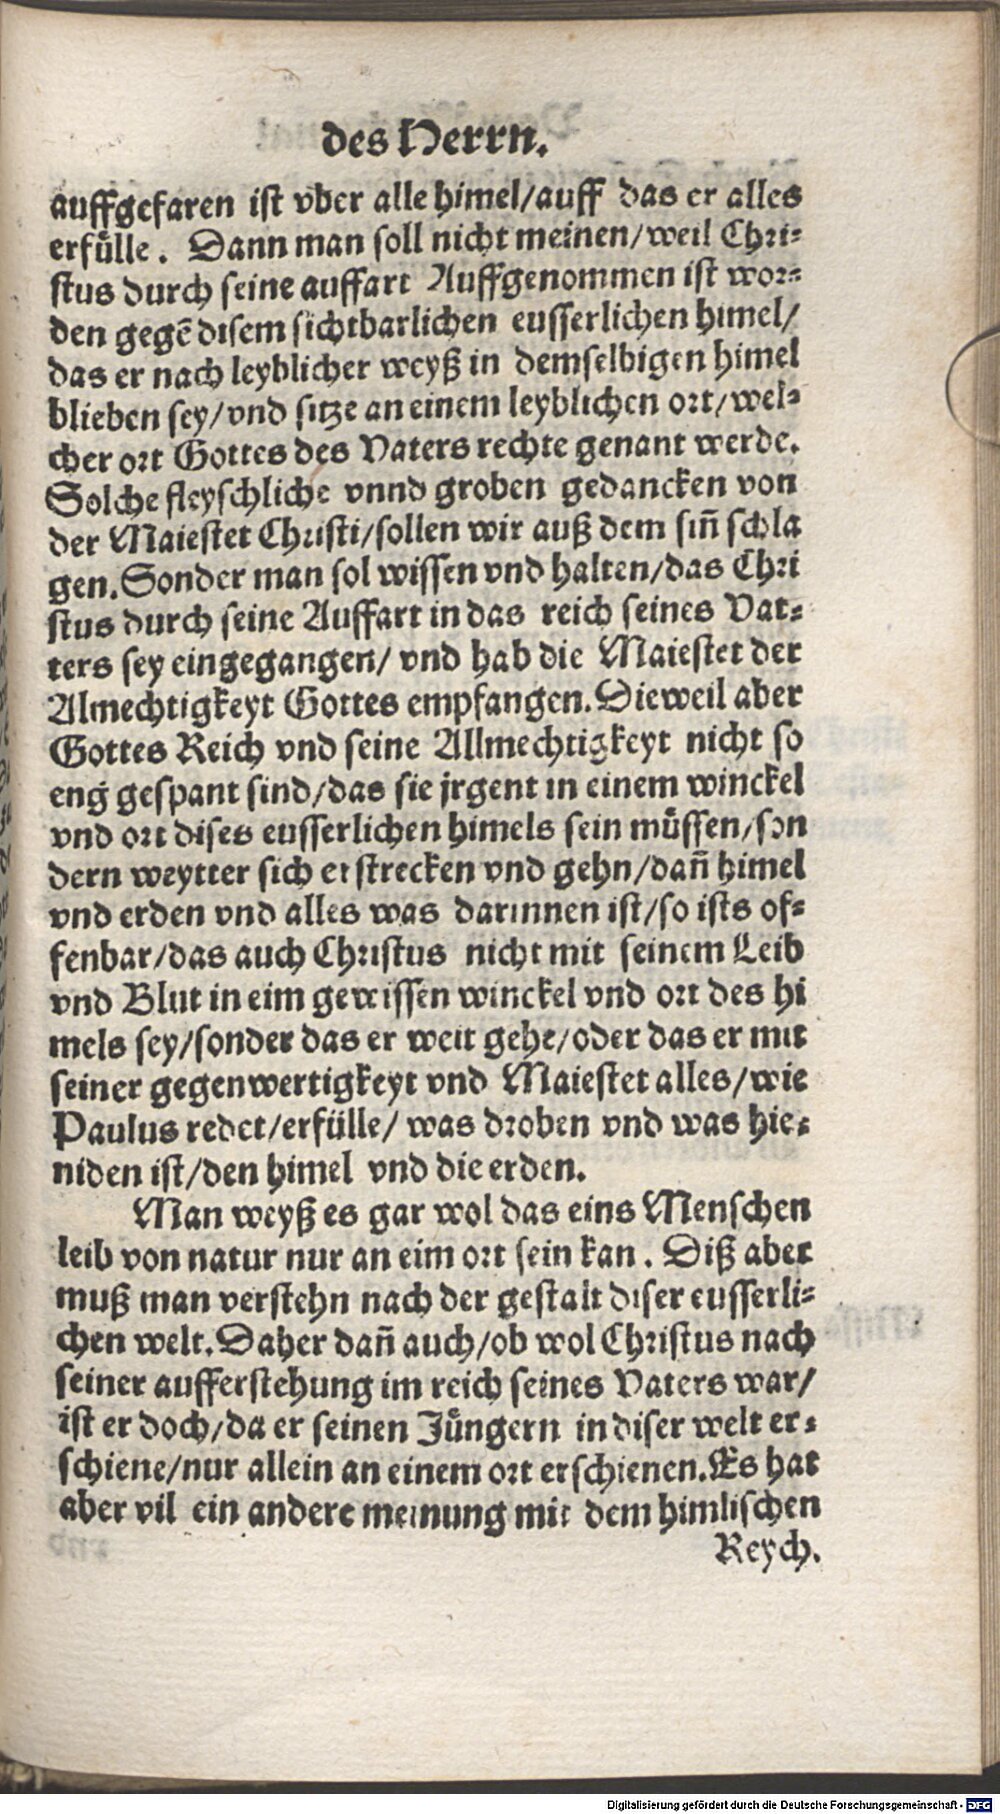 des Herrn.
auffgefaren ist vber alle himel/auff das er alles
erfülle. Dann man soll nicht meinen/weil Chri-
stus durch seine auffart Auffgenommen ist wor-
den gegē disem sichtbarlichen eusserlichen himel/
das er nach leyblicher weyß in demselbigen himel
blieben sey/vnd sitze an einem leyblichen ort/wel-
cher ort Gottes des Vaters rechte genant werde.
Solche fleyschliche vnnd groben gedancken von
der Maiestet Christi/sollen wir auß dem siñ schla
gen. Sonder man sol wissen vnd halten/das Chri
stus durch seine Auffart in das reich seines Vat-
ters sey eingegangen/ vnd hab die Maiestet der
Almechtigkeyt Gottes empfangen. Dieweil aber
Gottes Reich vnd seine Allmechtigkeyt nicht so
eng gespant sind/das sie jrgent in einem winckel
vnd ort dises eusserlichen himels sein müssen/son
dern weytter sich erstrecken vnd gehn/dañ himel
vnd erden vnd alles was darinnen ist/so ists of-
fenbar/das auch Christus nicht mit seinem Leib
vnd Blut in eim gewissen winckel vnd ort des hi
mels sey/sonder das er weit gehe/oder das er mit
seiner gegenwertigkeyt vnd Maiestet alles/wie
Paulus redet/erfülle/ was droben vnd was hie-
niden ist/den himel vnd die erden.
Man weyß es gar wol das eins Menschen
leib von natur nur an eim ort sein kan. Diß aber
muß man verstehn nach der gestalt diser eusserli-
chen welt. Daher dañ auch/ob wol Christus nach
seiner aufferstehung im reich seines Vaters war/
ist er doch/da er seinen Jüngern in diser welt er-
schiene/nur allein an einem ort erschienen. Es hat
aber vil ein andere meinung mit dem himlischen
Reych.
Digitalisierung gefördert durch die Deutsche Forschungsgemeinschaft - DFG